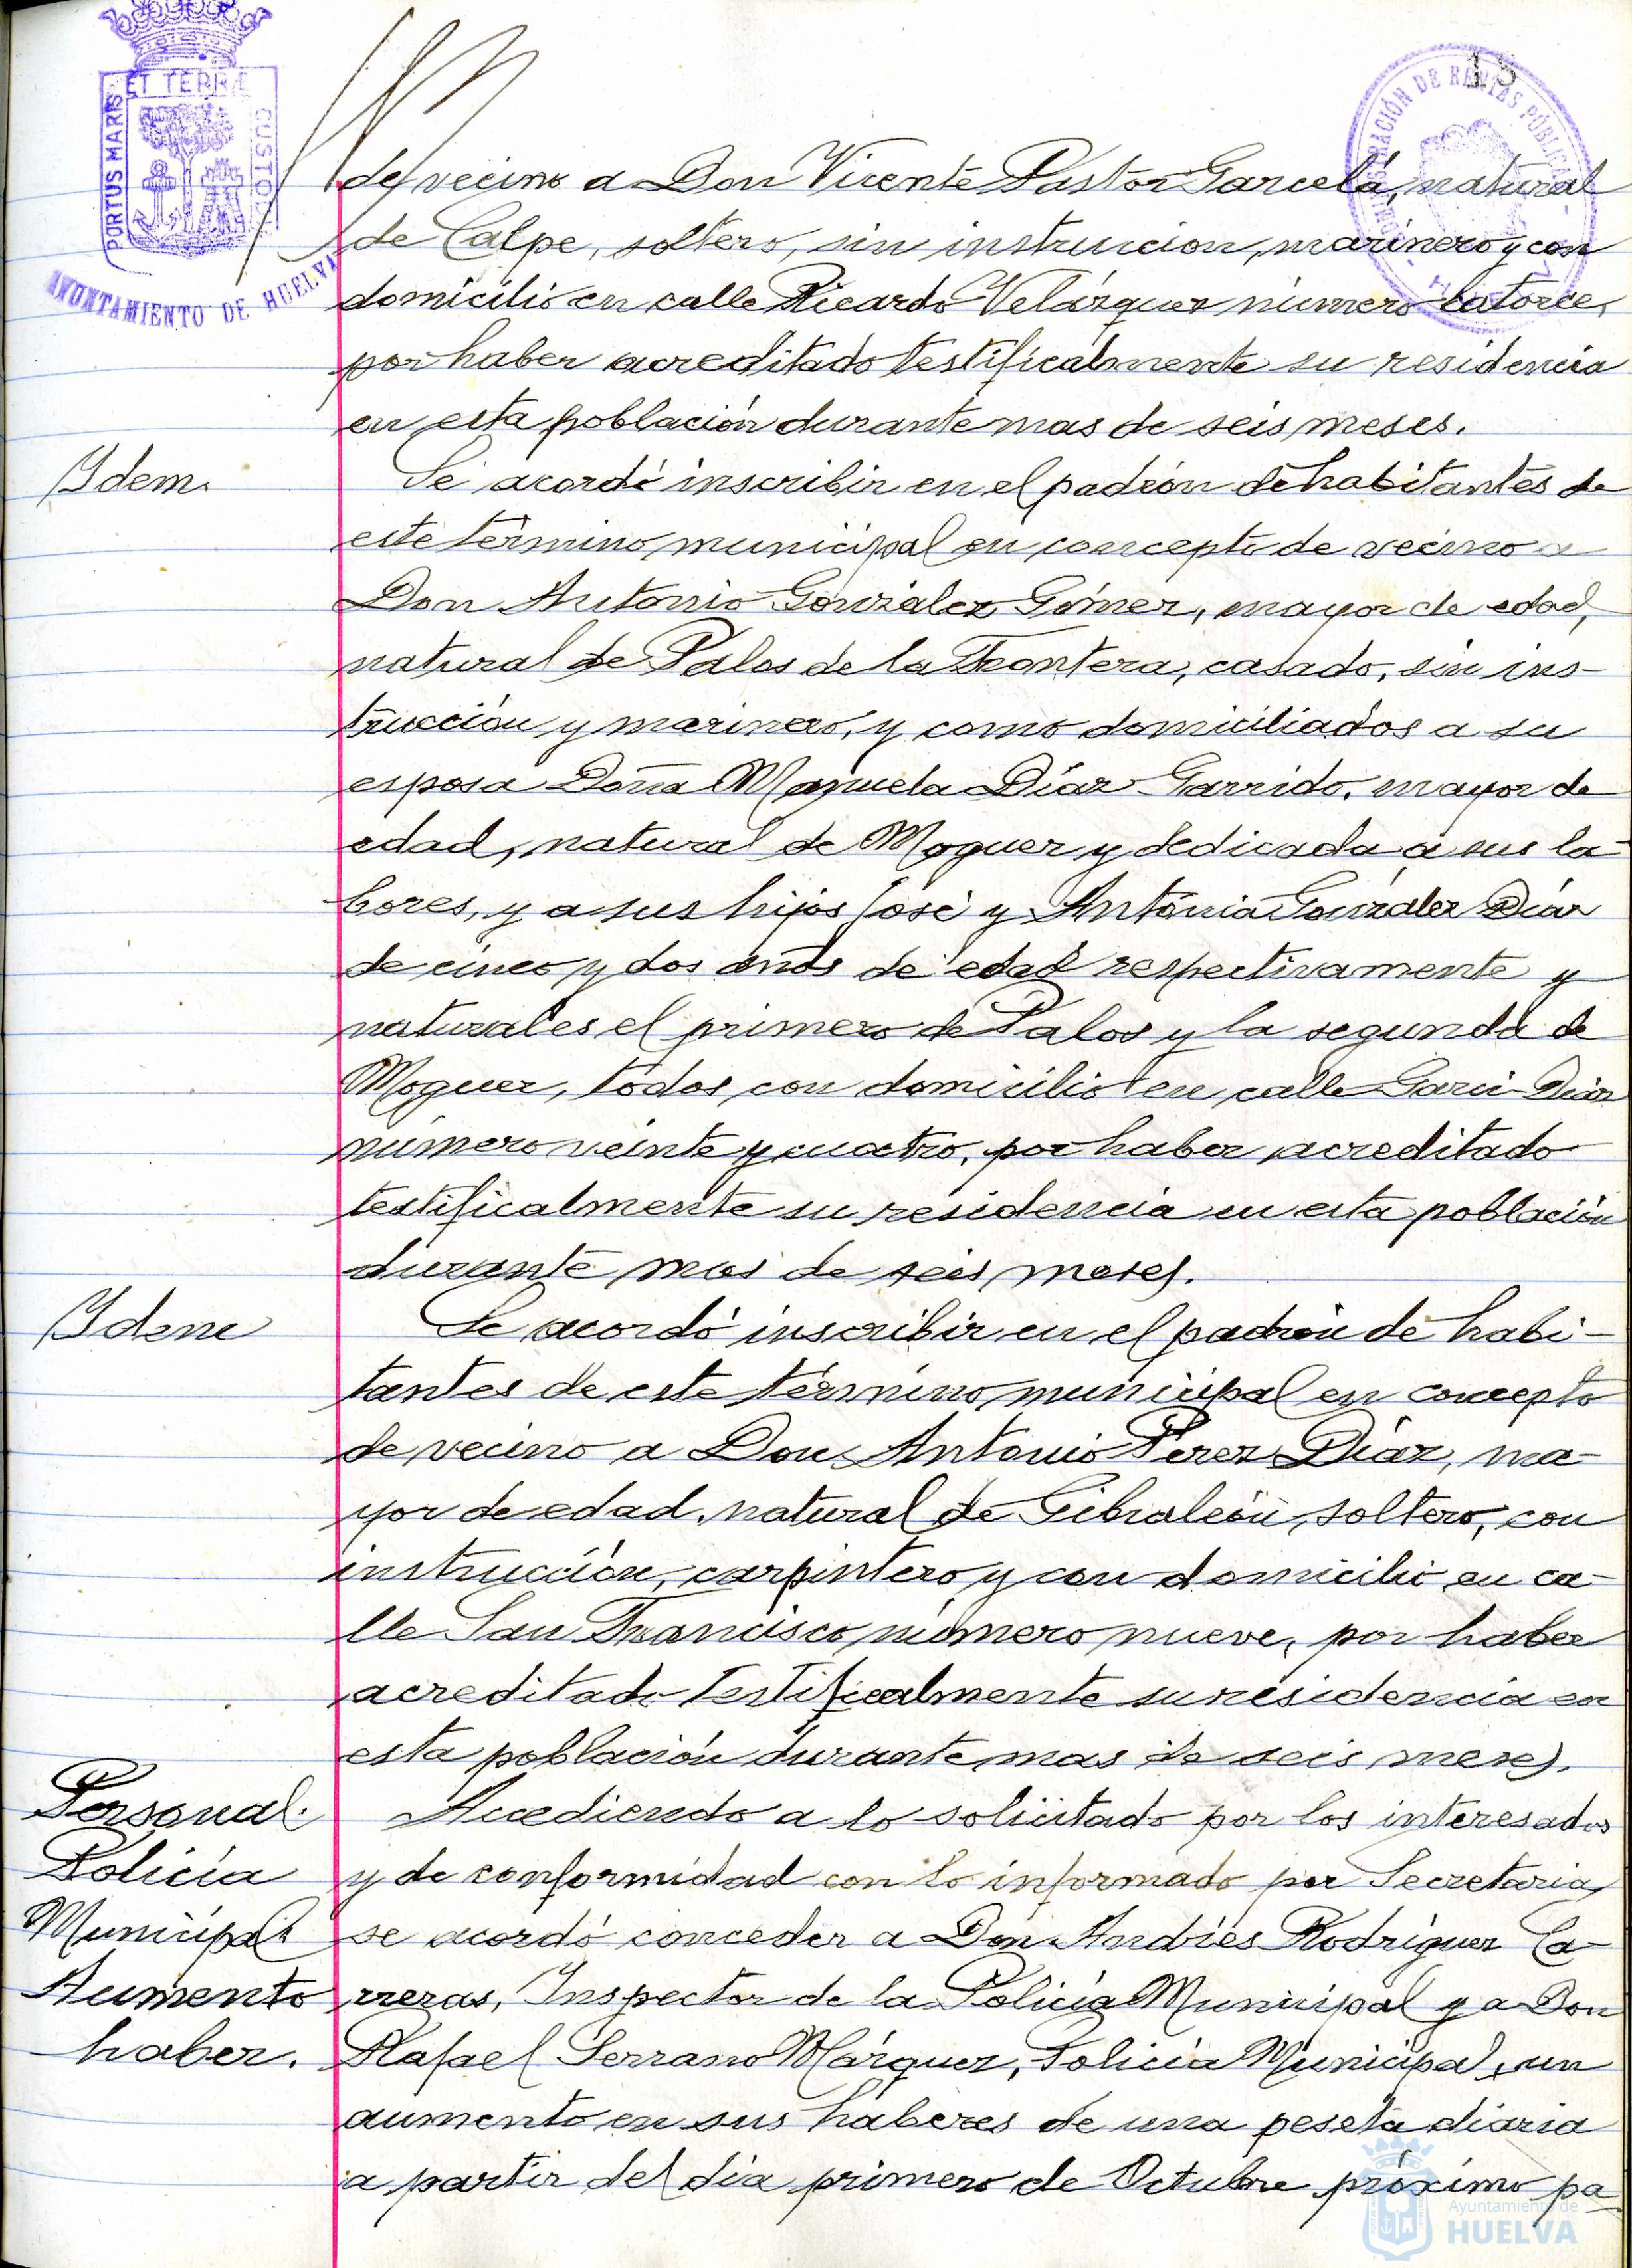 15
ET TERRÆ
PORTUS MARIS
CUSTODIA
AYUNTAMIENTO DE HUELVA
ADMINISTRACIÓN DE RENTAS PÚBLICAS
de vecino a Don Vicente Pastor Garcela, natural
de Calpe, soltero, sin instrucion, marinero y con
domicilio en calle Ricardo Velázquez número catorce,
por haber acreditado testificalmente su residencia
en esta población durante mas de seis meses.
Idem.
Se acordó inscribir en el padrón de habitantes de
este término municipal en concepto de vecino a
Don Antonio González Gómez, mayor de edad,
natural de Palos de la Frontera, casado, sin ins-
trucción y marinero, y como domiciliados a su
esposa Doña Manuela Díaz Garrido, mayor de
edad, natural de Moguer y dedicada a sus la-
bores, y a sus hijos José y Antonia González Díaz
de cinco y dos años de edad respectivamente y
naturales el primero de Palos y la segunda de
Moguer, todos con domicilio en calle Garci-Díaz
número veinte y cuatro, por haber acreditado
testificalmente su residencia en esta población
durante mas de seis meses.
Idem
Se acordó inscribir en el padrón de habi-
tantes de este término municipal en concepto
de vecino a Don Antonio Perez Díaz, ma-
yor de edad, natural de Gibraleón, soltero, con
instrucción, carpintero y con domicilio en ca-
lle San Francisco número nueve, por haber
acreditado testificalmente su residencia en
esta población durante mas de seis meses.
Personal.
Policía
Municipal
Aumento
haber.
Accediendo a lo solicitado por los interesados
y de conformidad con lo informado por Secretaria,
se acordó conceder a Don Andrés Rodríguez Ca-
rreras, Inspector de la Policía Municipal y a Don
Rafael Serrano Márquez, Policía Municipal, un
aumento en sus haberes de una peseta diaria
a partir del día primero de Octubre próximo pa
Ayuntamiento de
HUELVA